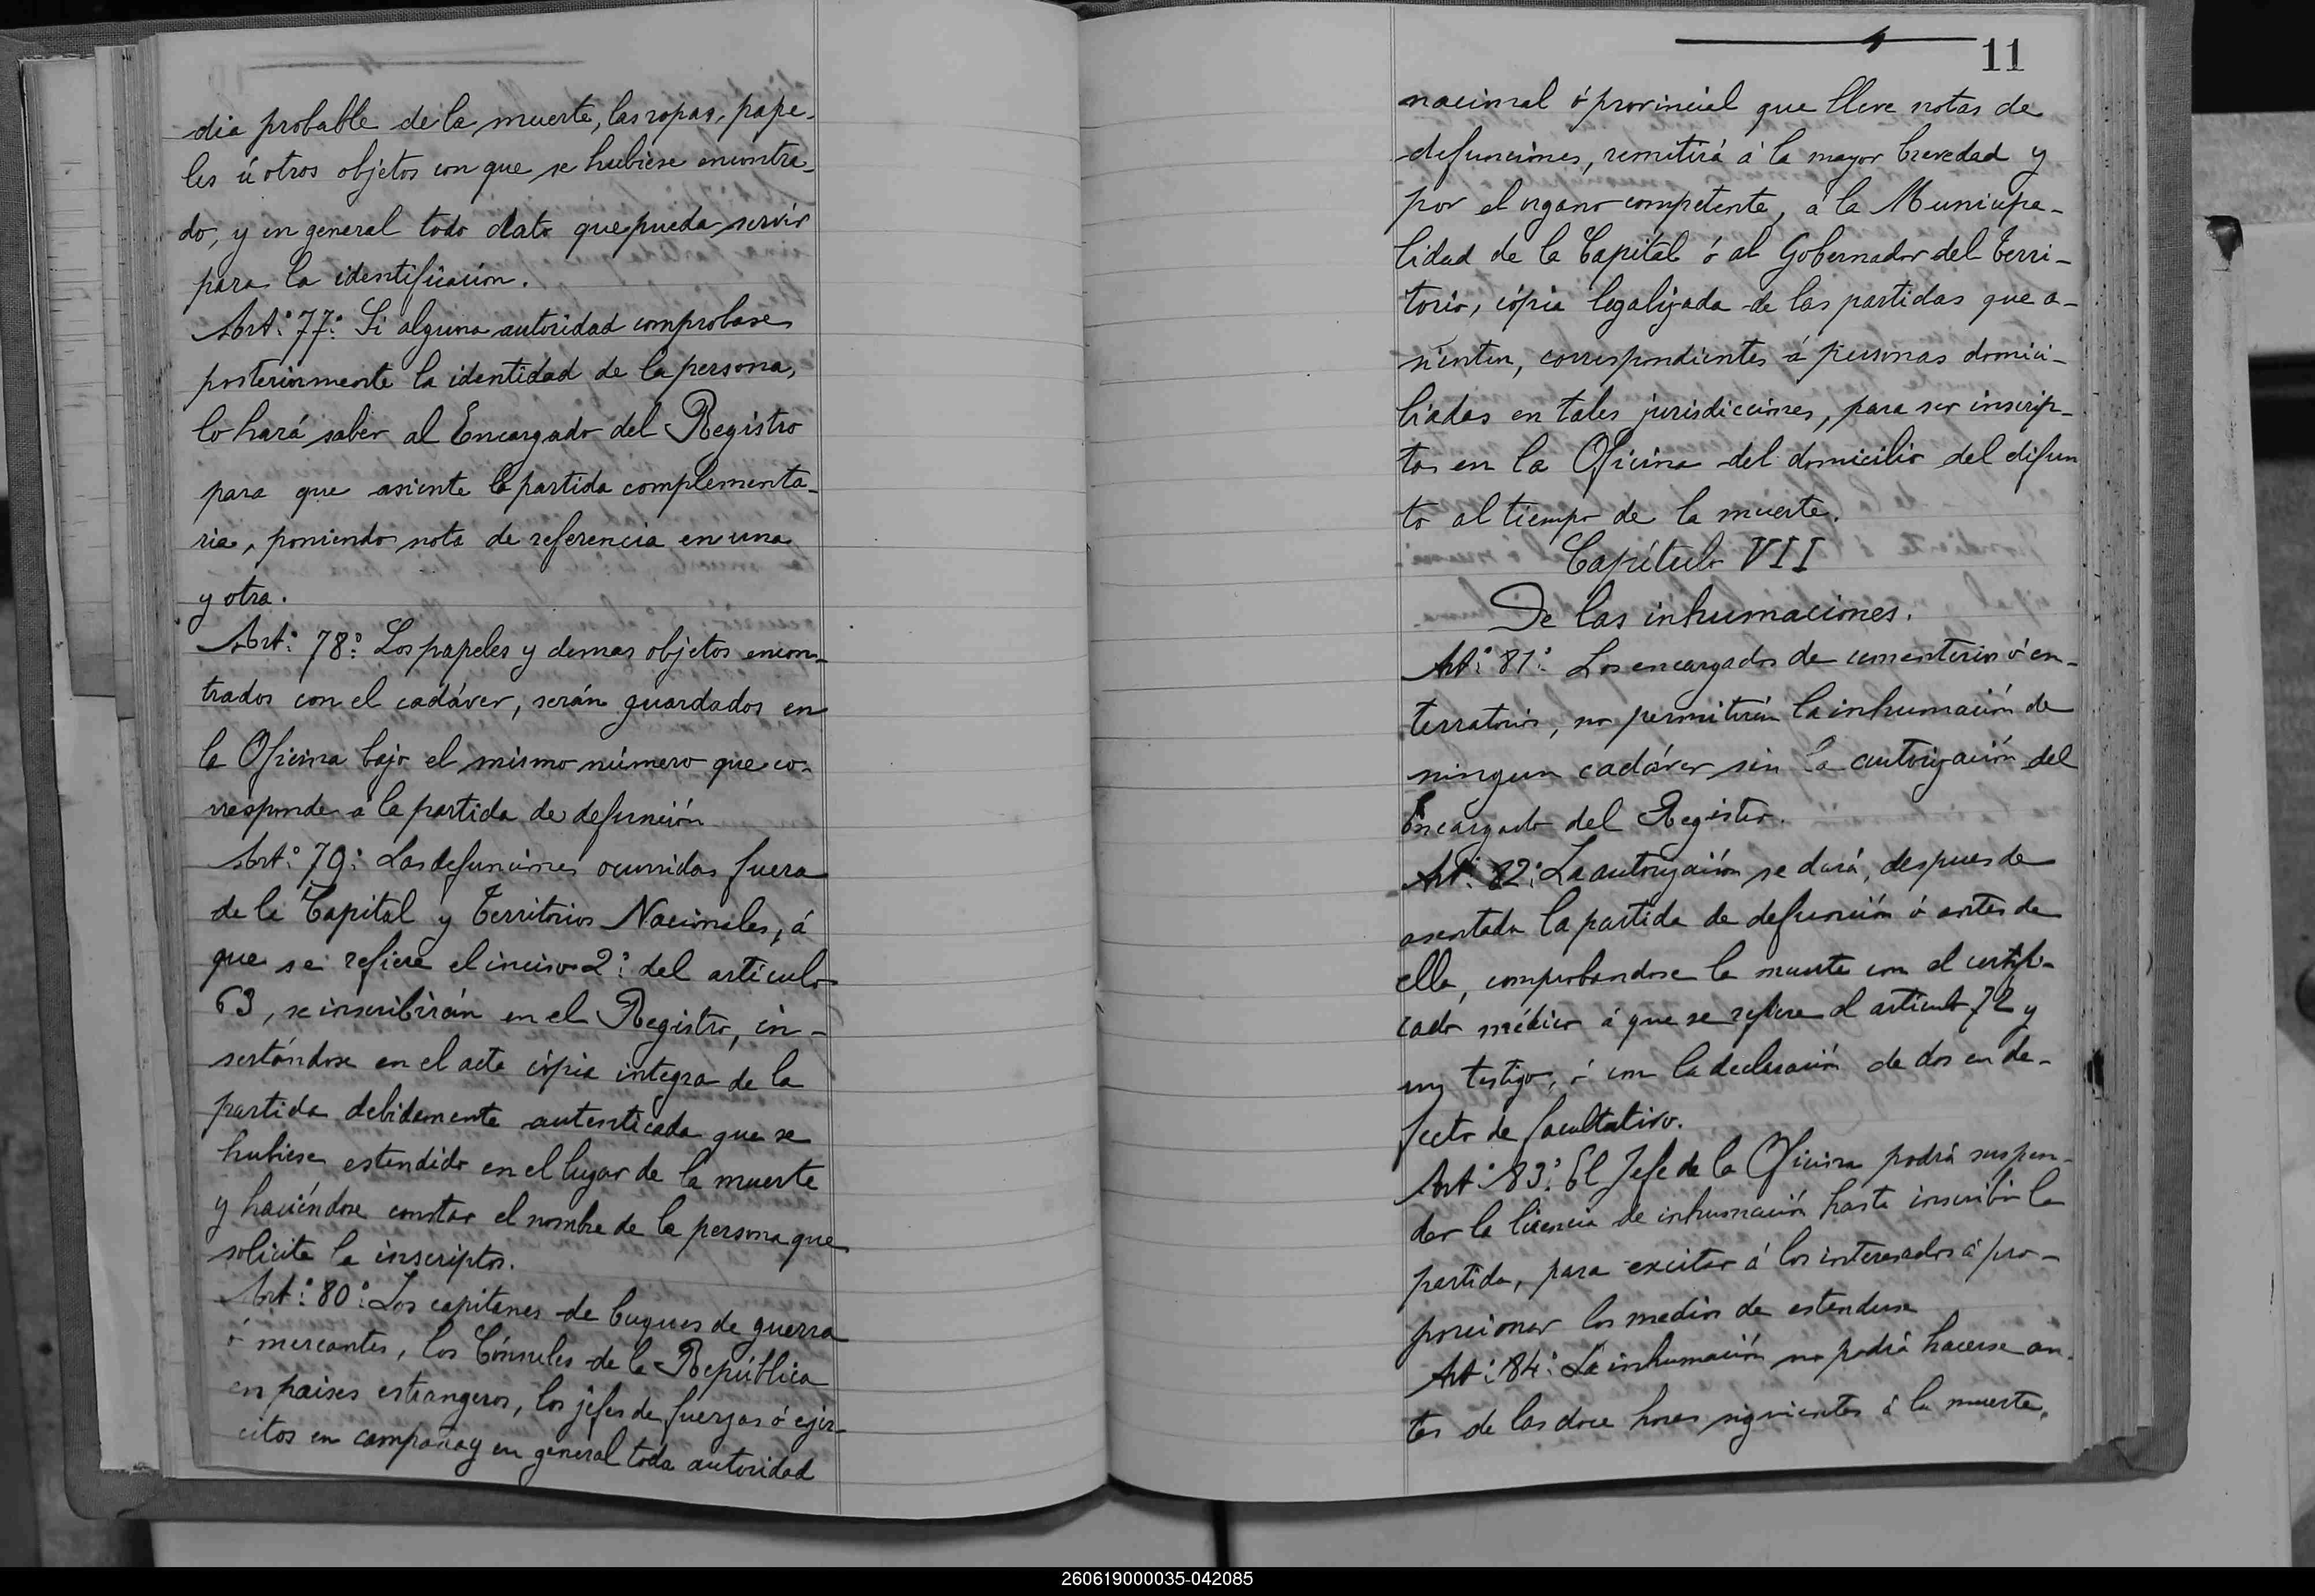 dia probable de la muerte, las ropas, pape-
les ú otros objetos con que se hubiese encontra-
do, y en general todo dato que pueda servir
para la identificación.
Art.º 77º: Si alguna autoridad comprobase
posteriormente la identidad de la persona,
lo hará saber al Encargado del Registro
para que asiente la partida complementa-
ria, poniendo nota de referencia en una
y otra.
Art.º 78º: Los papeles y demas objetos encon-
trados con el cadáver, serán guardados en
la Oficina bajo el mismo número que co-
rresponde á la partida de defunción
Art.º 79º: Las defunciones ocurridas fuera
de la Capital y Territorios Nacionales, á
que se refiere el inciso 2º: del artículo
63, se inscribirán en el Registro, in-
sertándose en el acta cópia integra de la
partida debidamente autenticada que se
hubiese estendido en el lugar de la muerte
y haciéndose constar el nombre de la persona que
solicite la inscriptos.
Art.º 80º: Los capitanes de buques de guerra
ó mercantes, los Cónsules de la República
en paises estrangeros, los jefes de fuerzas ó ejér-
citos en campaña y en general toda autoridad
11
nacional ó provincial que lleve notas de
defunciones, remitirá á la mayor brevedad y
por el órgano competente, á la Municipa-
lidad de la Capital ó al Gobernador del Terri-
torio, cópia legalizada de las partidas que a-
sienten, correspondientes á personas domici-
liadas en tales jurisdicciones, para ser inscrip-
tas en la Oficina del domicilio del difun
to al tiempo de la muerte.
Capítulo VII
De las inhumaciones.
Art.º 81º: Los encargados de cementerios ó en-
terratorios, no permitirán la inhumación de
ningun cadáver sin la autorización del
Encargado del Registro.
Art.º 82º: La autorización se dará, despues de
asentada la partida de defunción ó antes de
ella, comprobandose la muerte con el certifi-
cado médico á que se refiere el articulo 72 y
un testigo, ó con la declaración de dos en de-
fecto de facultativo.
Art.º 83º: El Jefe de la Oficina podrá suspen-
der la licencia de inhumación hasta inscribir la
partida, para excitar á los interesados á pro-
porcionar los medios de estenderse
Art.º 84º: La inhumación no podrá hacerse an-
tes de las doce horas siguientes á la muerte,
260619000035-042085